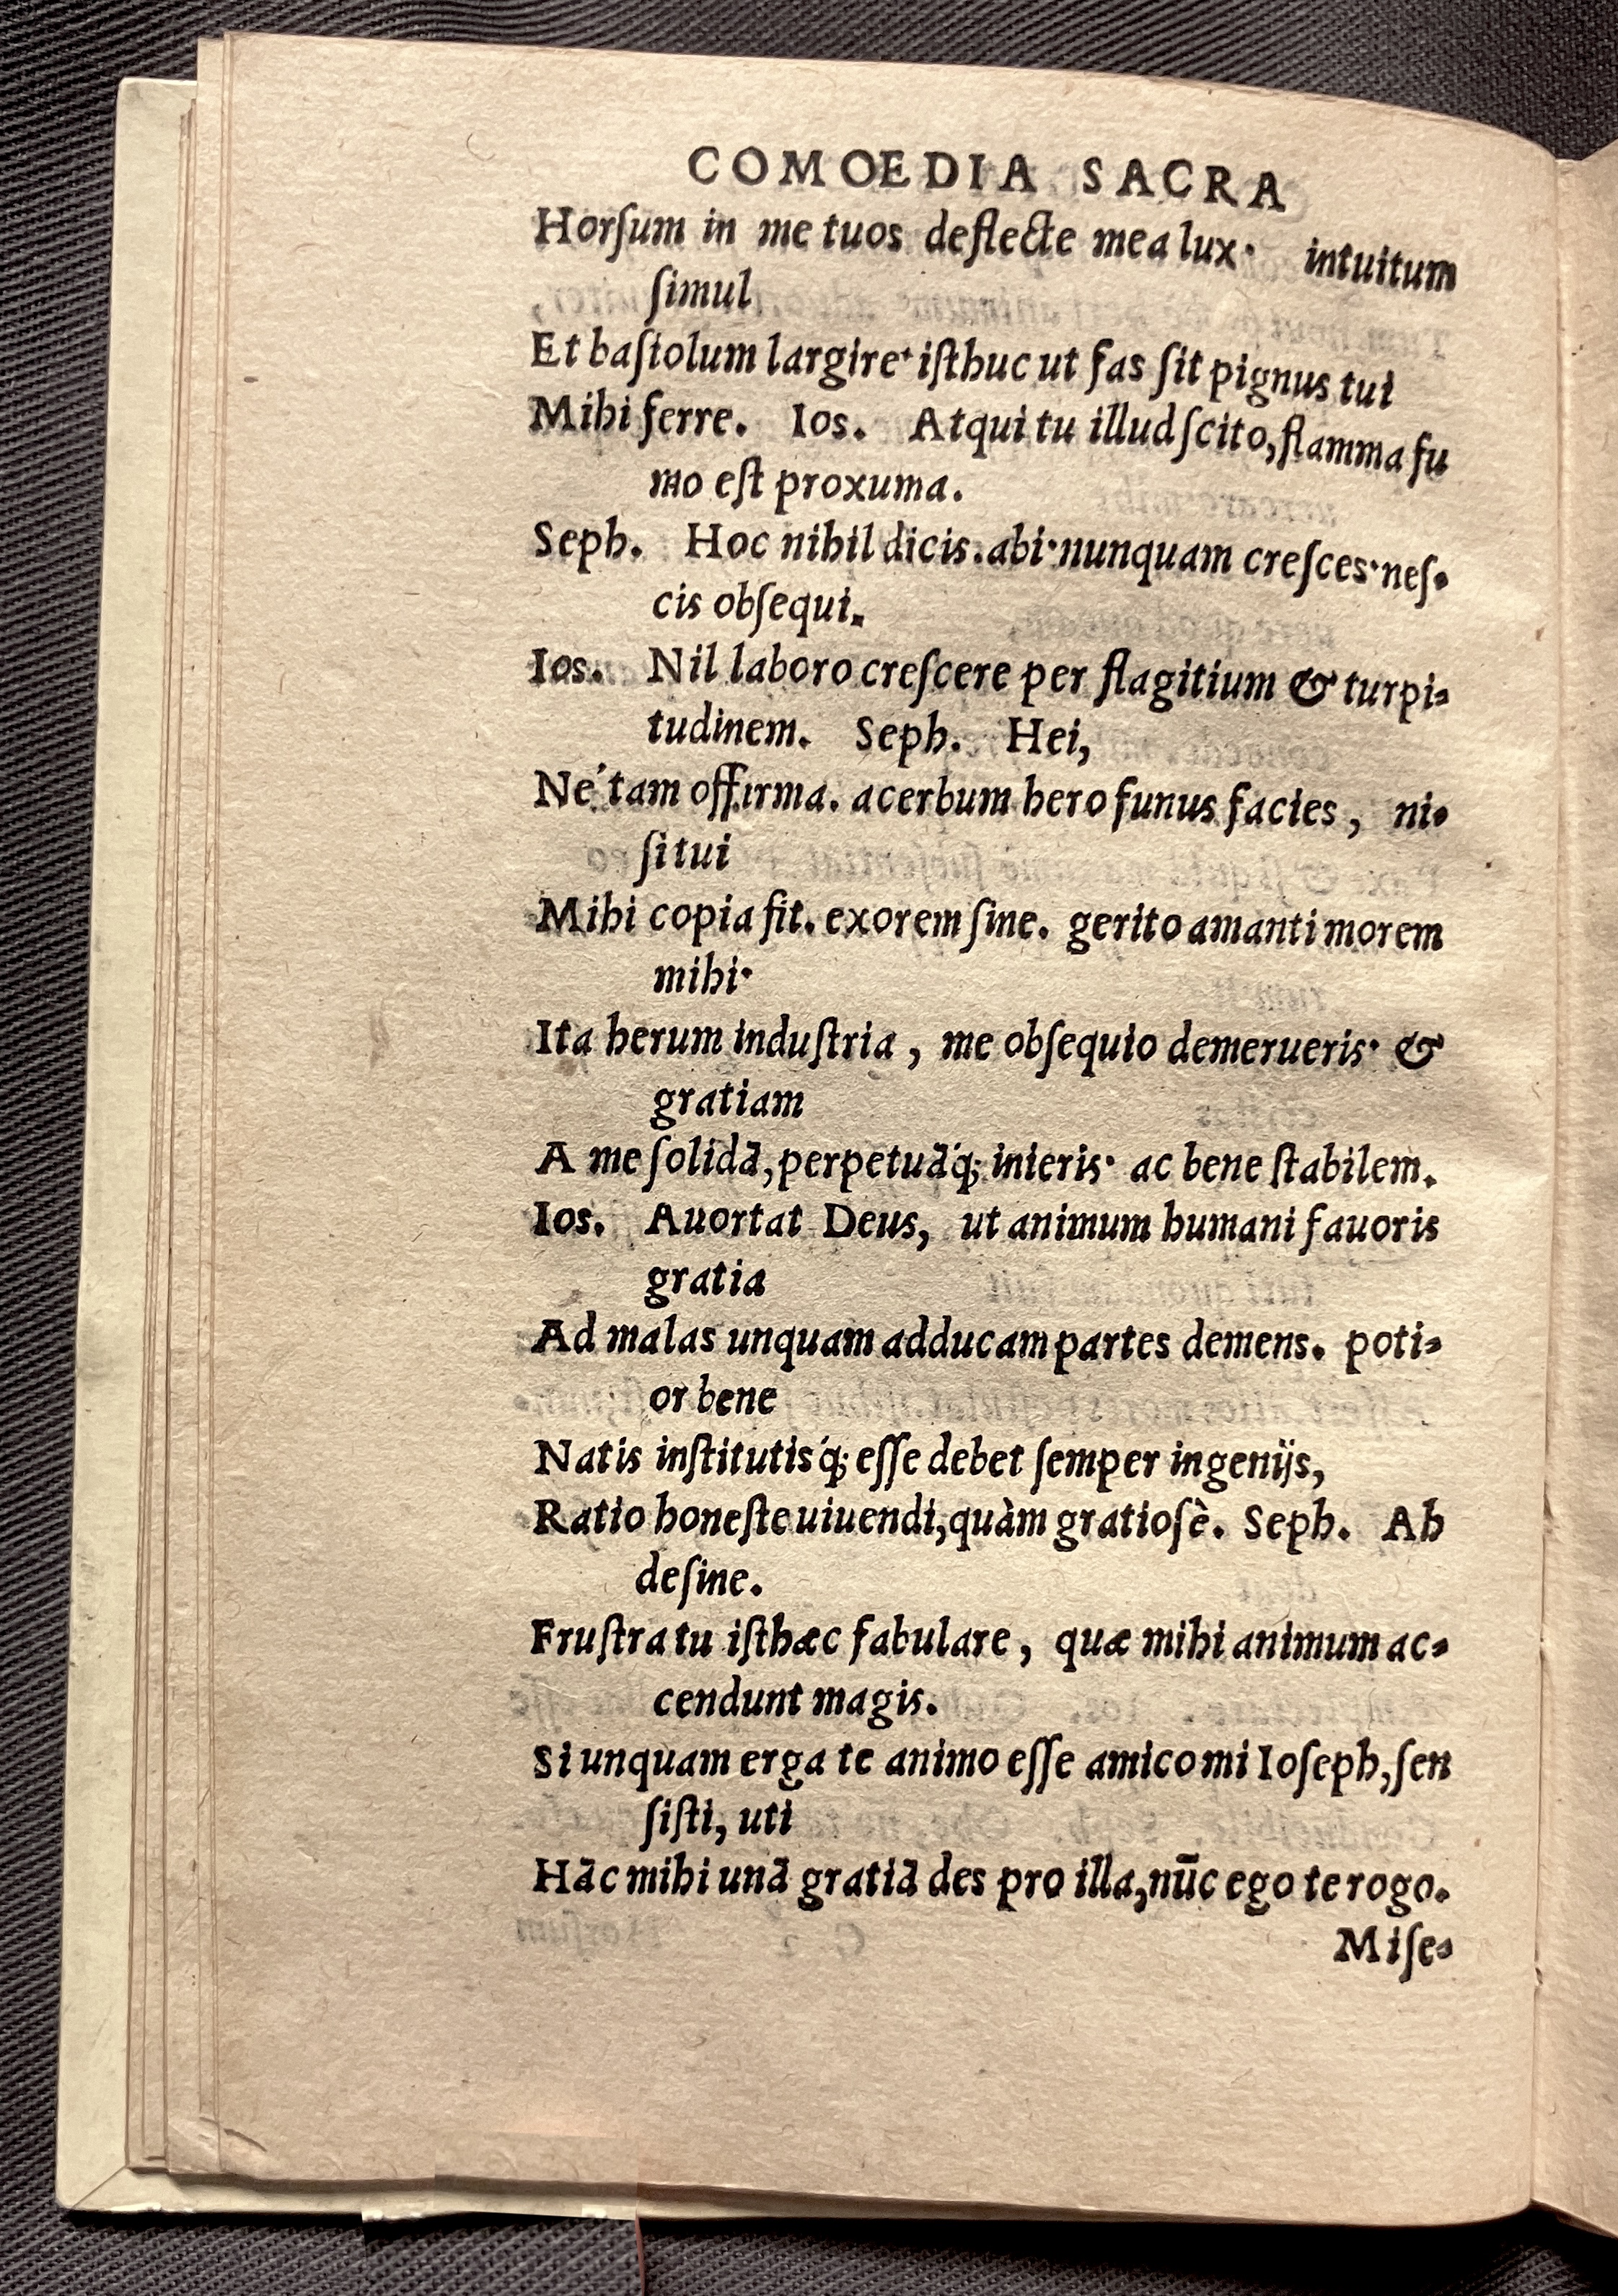 COMOEDIA SACRA
Horſum in me tuos deflecte mea lux· intuitum
ſimul
Et baſiolum largire· iſthuc ut fas ſit pignus tui
Mihi ferre. Ios. Atqui tu illud ſcito, flamma fu
mo eſt proxuma.
Seph. Hoc nihil dicis. abi· nunquam creſces· neſ-
cis obſequi.
Ios. Nil laboro creſcere per flagitium & turpi-
tudinem. Seph. Hei,
Ne´ tam offirma. acerbum hero funus facies, ni-
ſi tui
Mihi copia fit. exorem ſine. gerito amanti morem
mihi·
Ita herum induſtria, me obſequio demerueris· &
gratiam
A me ſolidā, perpetuāq́; inieris· ac bene ſtabilem.
Ios. Auortat Deus, ut animum humani fauoris
gratia
Ad malas unquam adducam partes demens. poti-
or bene
Natis inſtitutisq́; eſſe debet ſemper ingenijs,
Ratio honeſte uiuendi, quàm gratioſè. Seph. Ah
deſine.
Fruſtra tu iſthæc fabulare, quæ mihi animum ac-
cendunt magis.
Si unquam erga te animo eſſe amico mi Ioſeph, ſen
ſiſti, uti
Hāc mihi unā gratiā des pro illa, nūc ego te rogo.
Miſe-